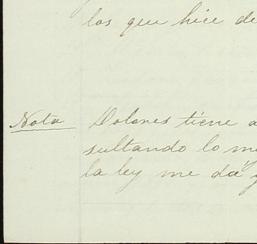 los que hice de
Nota Dolores tiene a
sultando lo me
la ley me dá y